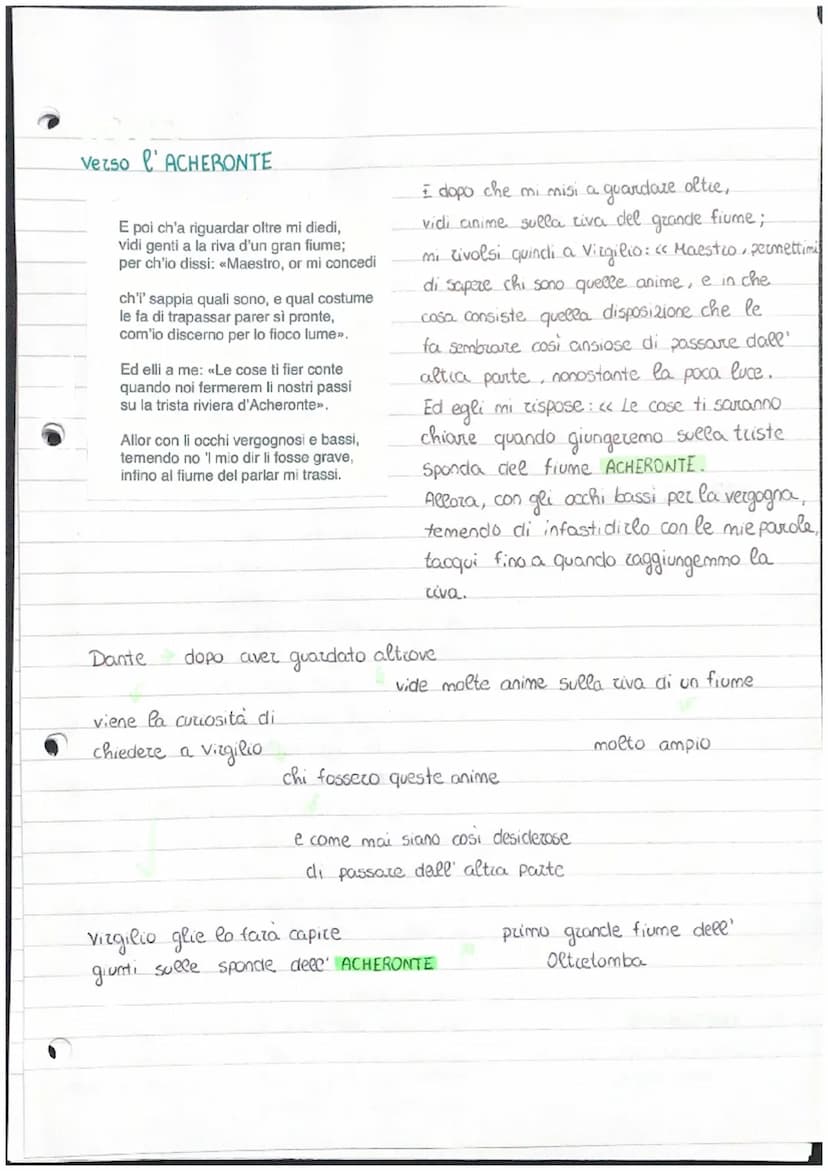 Verso l'ACHERONTE
E poi ch'a riguardar oltre mi diedi,
vidi genti a la riva d'un gran fiume;
per ch'io dissi: «Maestro, or mi concedi
ch'i' sappia quali sono, e qual costume
le fa di trapassar parer sì pronte,
com'io discerno per lo fioco lume».
Ed elli a me: «Le cose ti fier conte
quando noi fermerem li nostri passi
su la trista riviera d'Acheronte».
Allor con li occhi vergognosi e bassi,
temendo no 'l mio dir li fosse grave,
infino al fiume del parlar mi trassi.
E dopo che mi misi a guardare oltre,
vidi anime sulla riva del grande fiume;
mi rivolsi quindi a Virgilio: << Maestro, permettimi
di sapere chi sono quelle anime, e in che
cosa consiste quella disposizione che le
fa sembrare così ansiose di passare dall'
altra parte, nonostante la poca luce.
Ed egli mi rispose: << Le cose ti saranno
chiare quando giungeremo sulla triste
sponda del fiume ACHERONTE.
Allora, con gli occhi bassi per la vergogna,
temendo di infastidirlo con le mie parole,
tacqui fino a quando raggiungemmo la
riva.
Dante → dopo aver guardato altrove
vide molte anime sulla riva di un fiume
viene la curiosità di
chiedere a Virgilio
molto ampio
chi fossero queste anime
e come mai siano così desiderose
di passare dall'altra parte
Virgilio glie lo farà capire
giunti sulle sponde dell' ACHERONTE
primo grande fiume dell'
Oltretomba